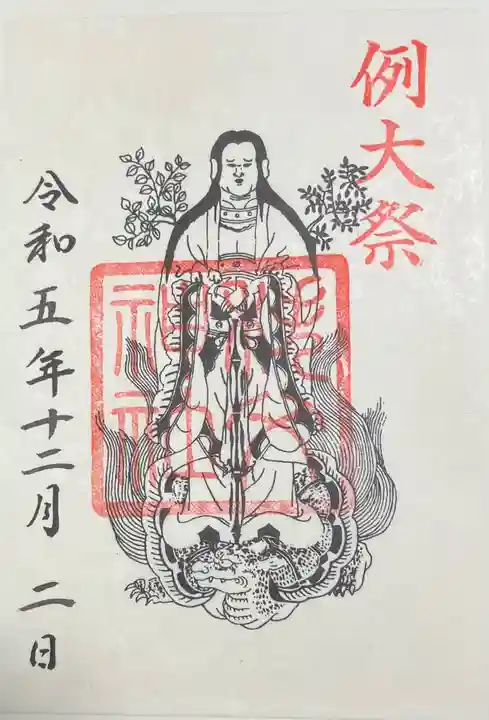 例大祭
令和五年十二月 二日